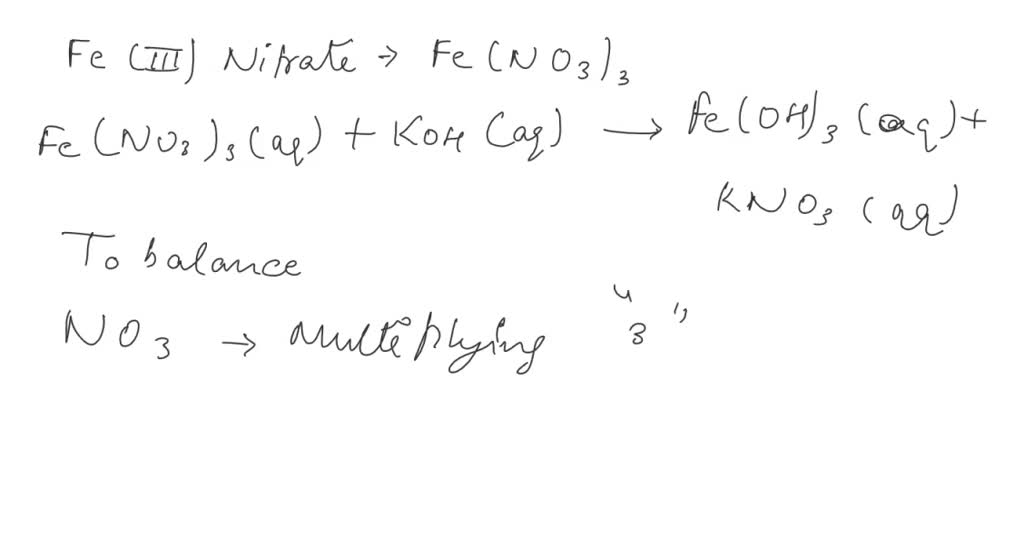 Fe (III) Nitrate → Fe(NO₃)₃
Fe(NO₃)₃(aq) + KOH (aq) → Fe(OH)₃ (aq) +
KNO₃ (aq)
To balance
NO₃ → Multiplying "3"